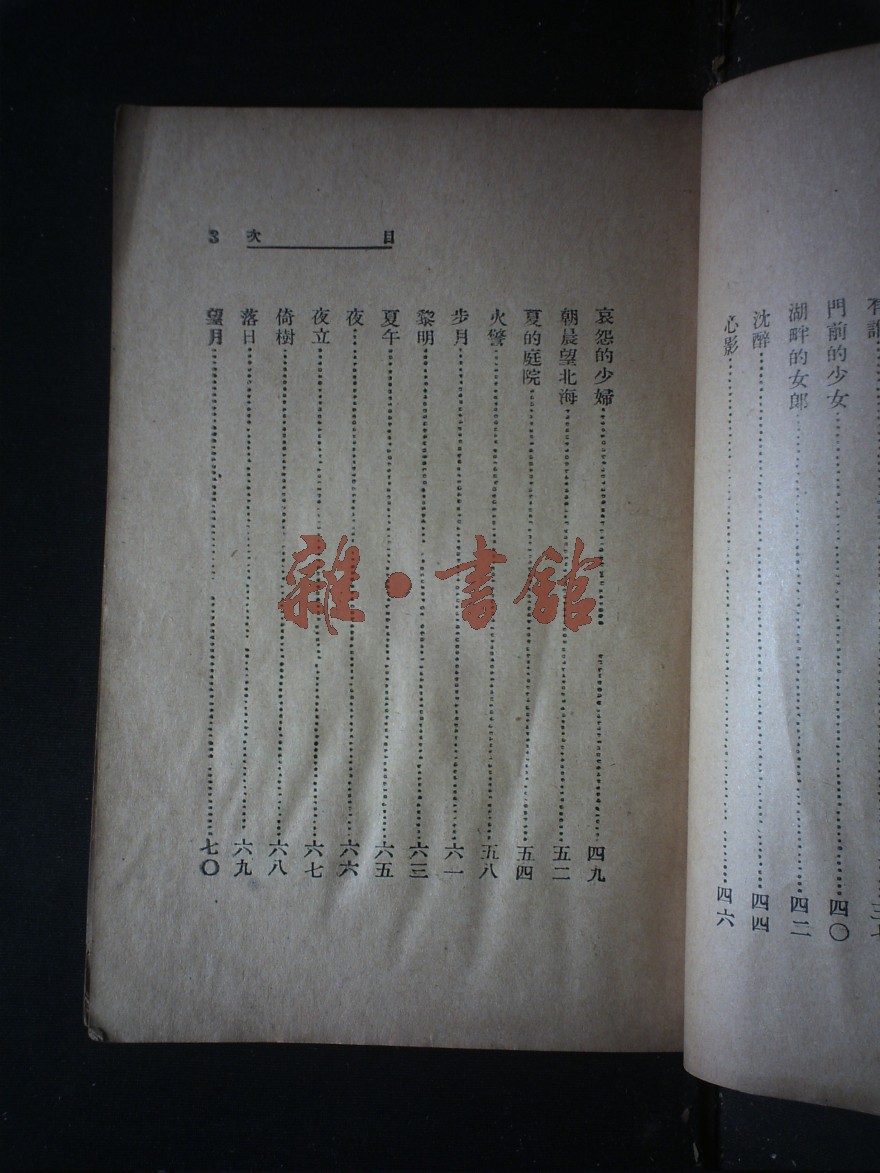 三七
門前的少女……四〇
湖畔的女郎……四二
沈醉……四四
心影……四六
目次 3
哀怨的少婦……四九
朝晨望北海……五二
夏的庭院……五四
火警……五八
步月……六一
黎明……六三
夏午……六五
夜……六六
夜立……六七
倚樹……六八
落日……六九
望月……七〇
雜·書館